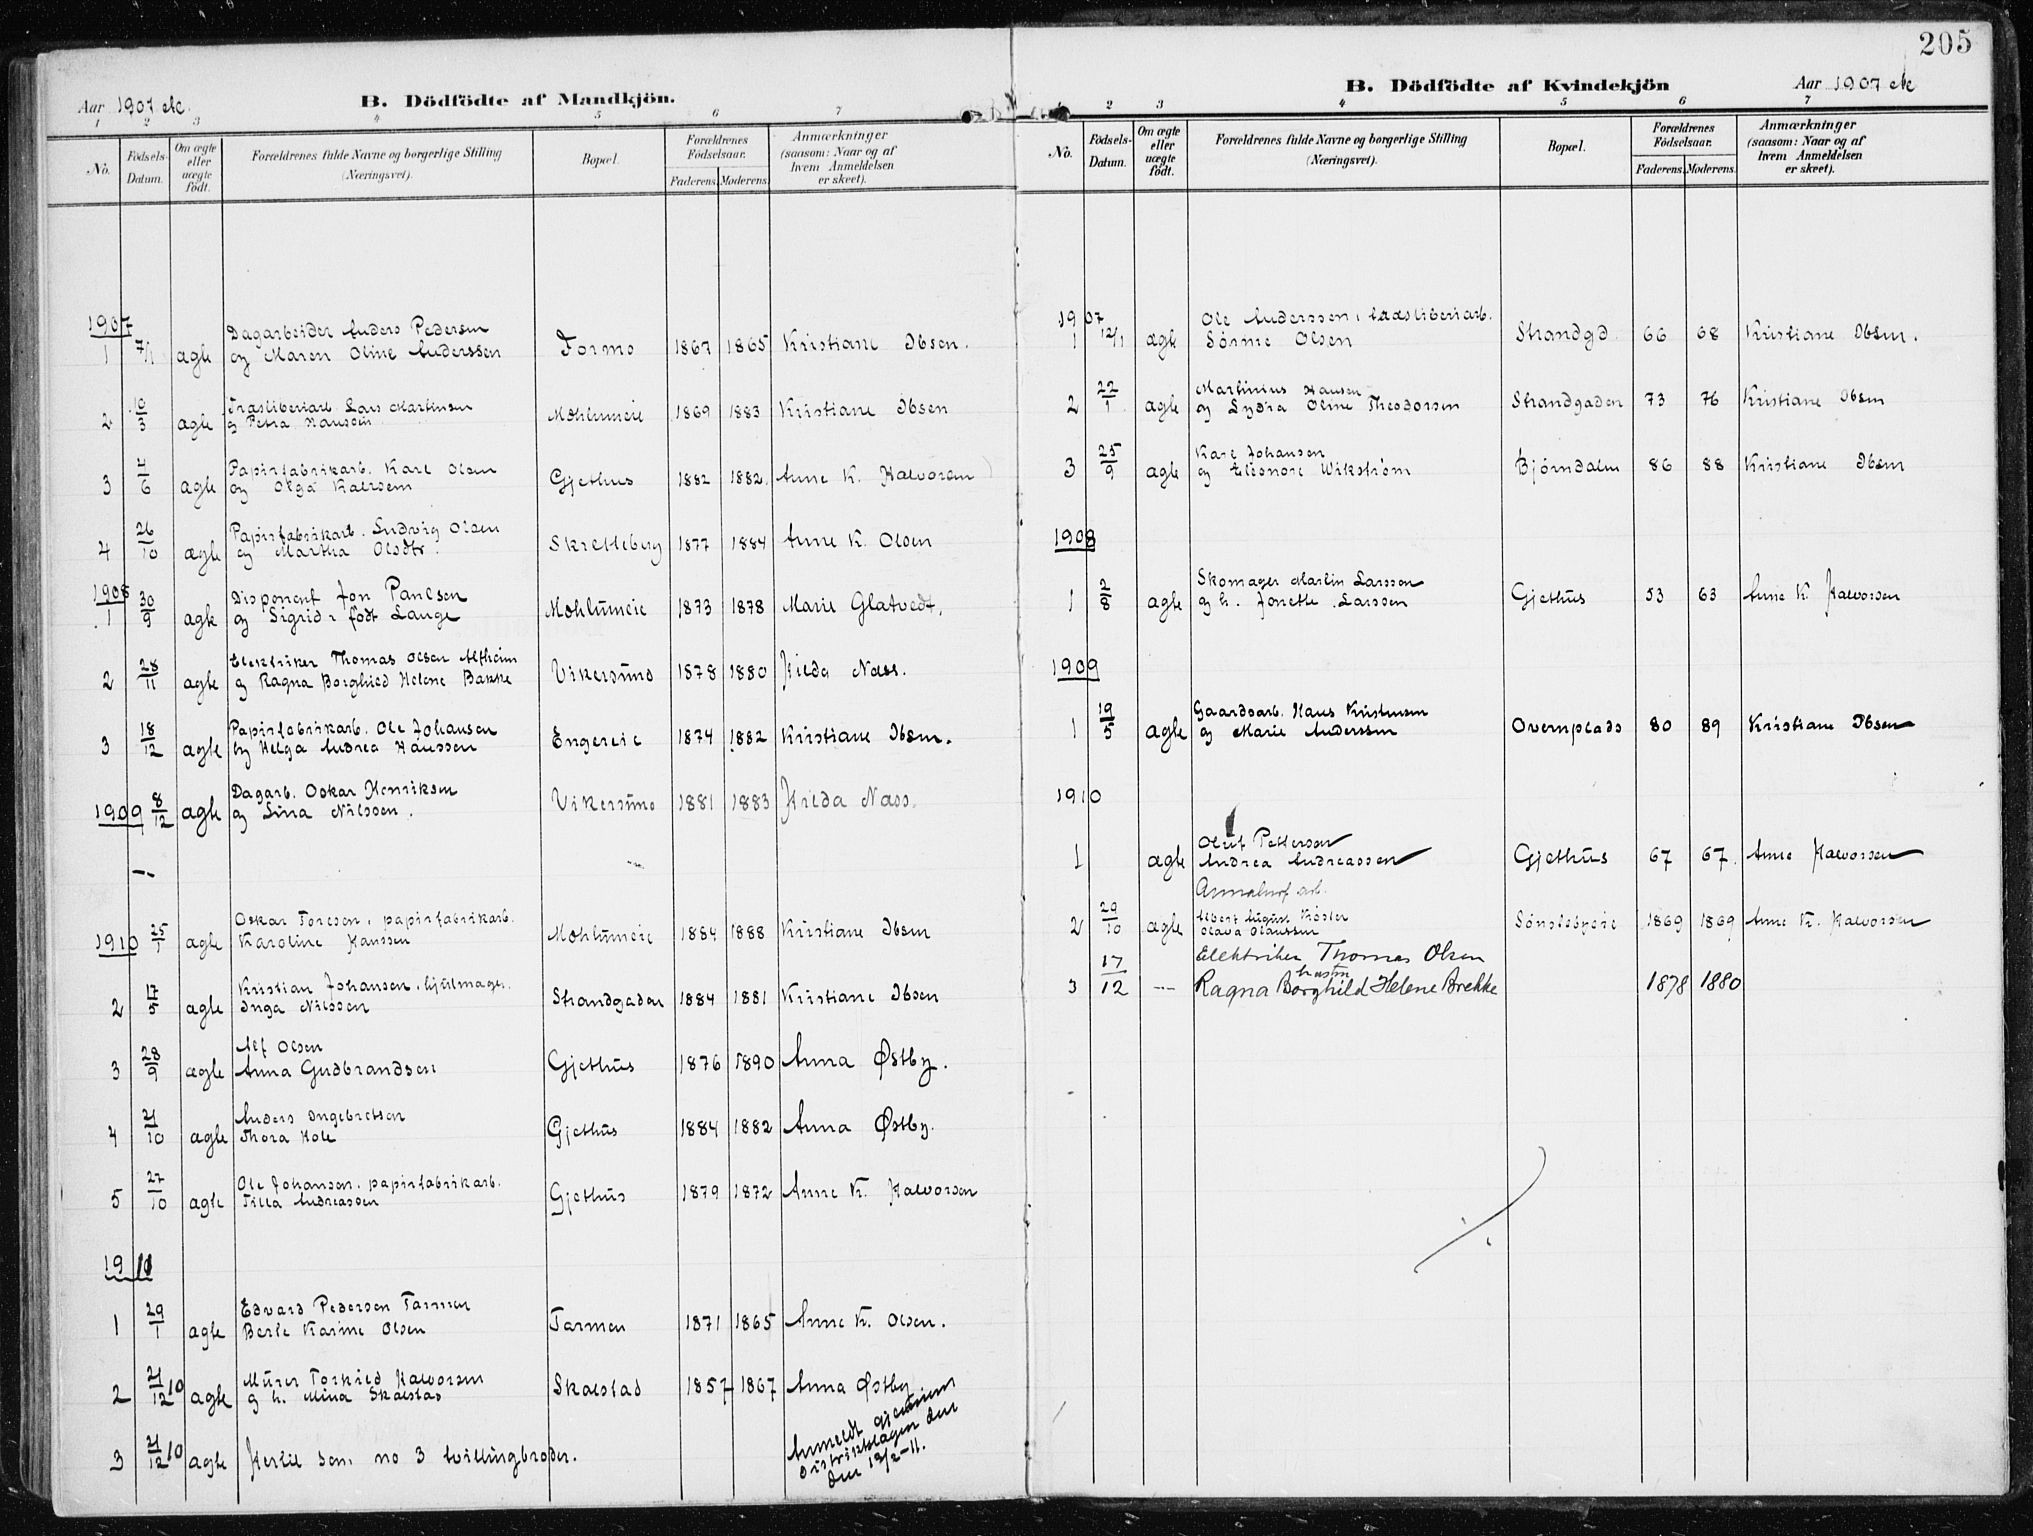 205
Aar 1907 etc.
B. Dödfödte af Mandkjön.
1 2 3 4 5 6 7
No.
Födsels-Datum.
Om ægte eller uægte födt.
Forældrenes fulde Navne og borgerlige Stilling (Næringsvei).
Bopæl.
Forældrenes Födselsaar.
Faderens. Moderens.
Anmærkninger (saasom: Naar og af hvem Anmeldelsen er skeet).
1907
Dagarbeider Anders Pedersen
1 7/1 ægte og Maren Oline Anderssen Formo 1867 1865 Kristiane Ibsen.
Træsliberiarb. Lars Martinsen
2 10/3 ægte og Petra Hansen Mohlumeie 1869 1883 Kristiane Ibsen
Papirfabrikarb. Karl Olsen
3 4/6 ægte og Olga Karlsen Gjethus 1882 1882. Anne K. Halvorsen
Papirfabrikarb. Ludvig Olsen
4 26/10 ægte og Martha Olsdtr. Skretteberg 1877 1884 Anne K. Olsen
1908
Disponent Jon Paulsen
1 30/9 ægte og Sigrid, födt Lange Mohlumeie 1873 1878 Marie Glatvedt,
Elektriker Thomas Olsen Alfheim
2 28/11 ægte og Ragna Borghild Helene Bakke Vikersund 1878 1880 Hilda Næss.
Papirfabrikarb. Ole Johansen
3 18/12 ægte og Helga Andrea Hanssen Engereie 1874 1882 Kristiane Ibsen.
Dagarb. Oskar Henriksen
1909 8/12 ægte og Lina Nilssen. Vikersund 1881 1883 Hilda Næss.
Oskar Toresen, papirfabrikarb.
1910 25/1 ægte Karoline Hanssen Mohlumeie 1884 1888 Kristiane Ibsen
Kristian Johansen, hjulmager.
2 17/5 ægte Inga Nilssen Strandgaden 1884 1881 Kristiane Ibsen
Alf Olsen
3 28/9 ægte Anna Gudbrandsen Gjethus 1876 1890 Anna Østby.
Anders Ingebretsen
4 21/10 ægte Thora Hole Gjethus 1884 1882 Anna Østby.
Ole Johansen, papirfabrikarb.
5 27/10 ægte Tilla Andreassen Gjethus 1879 1872 Anne K. Halvorsen
1911
Edvard Pedersen Tarmen
1 29/1 ægte Berte Karine Olsen Tarmen 1871 1865 Anne K. Olsen.
Murer Torkild Halvorsen
2 21/12 10 ægte og h. Mina Skalstad Skalstad 1857 1867 Anna Østby
3 21/12 10 ægte tvillingbroder.
Anmeldt gjennem
distriktslægen den
den 13/2-11.
B. Dödfödte af Kvindekjön
Aar 1907 etc
2 3 4 5 6 7
No.
Födsels-Datum.
Om ægte eller uægte födt.
Forældrenes fulde Navne og borgerlige Stilling (Næringsvei).
Bopæl.
Forældrenes Födselsaar.
Faderens. Moderens.
Anmærkninger (saasom: Naar og af hvem Anmeldelsen er skeet).
1907
Ole Anderssen,
1 12/1 ægte Sørine Olsen Strandgd. 66 68 Kristiane Ibsen.
Martinius Hansen
2 22/1 ægte og Lydia Oline Theodorsen Strandgaden 73 76 Kristiane Ibsen
Karl Johansen
3 25/9 ægte og Eleonore Wikstrøm Bjørndalen 86 88 Kristiane Ibsen
1908
Skomager Martin Larssen
1 2/8 ægte og h. Jonette Larssen Gjethus 53 63 Anne K Halvorsen
1909
Gaardsarb. Hans Kristensen
1 19/5 ægte og Marie Anderssen Overnplads 80 89 Kristiane Ibsen
1910
Oluf Pettersen
1 ægte Andrea Andreassen Gjethus 67 67. Anne Halvorsen
Albert August Köster
2 29/10 ægte Olava Olaussen 1869 1869 Anne K. Halvorsen
Elektriker Thomas Olsen
3 17/12 — hustru Ragna Borghild Helene Brekke 1878 1880